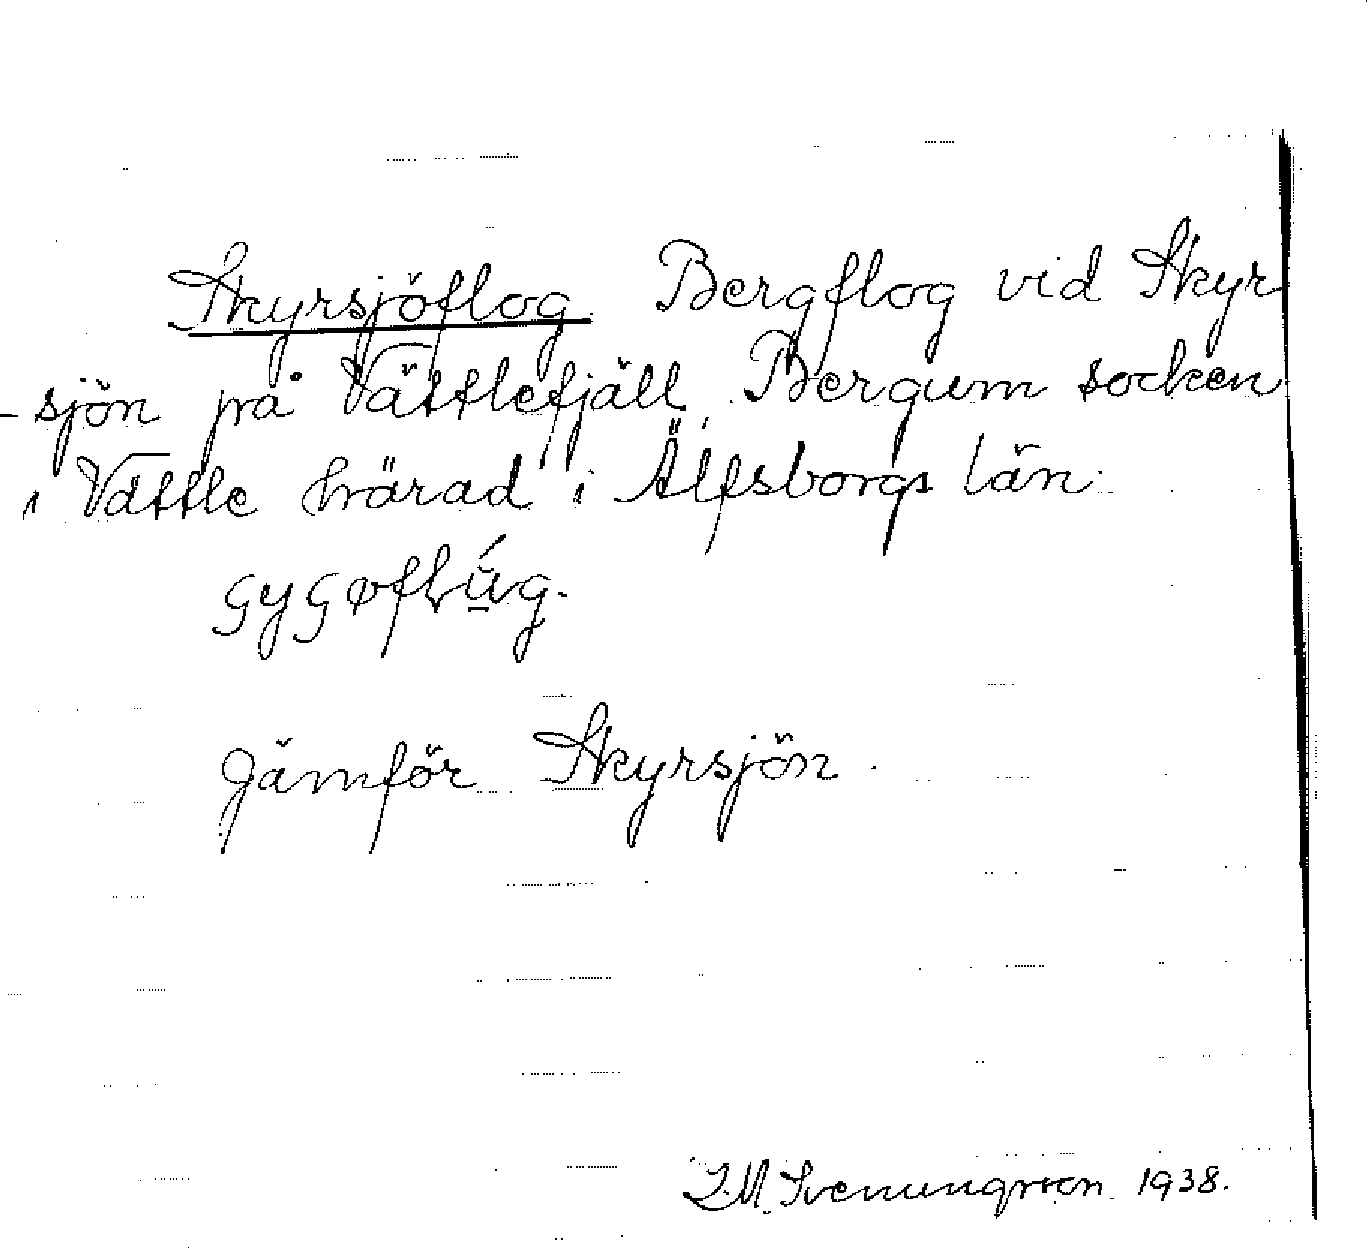 Skyrsjöflog. Bergflog vid Skyr
-sjön på Vättlefjäll, Bergum socken
i Vättle härad i Älfsborgs län.
Jämför Skyrsjön.
I.M. Svenungsson 1938.